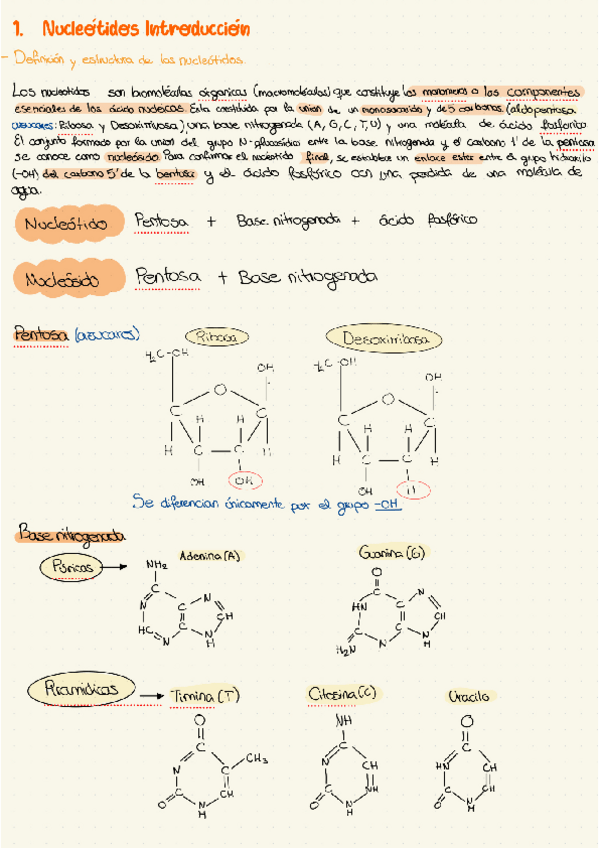 1. Nucleótidos Introducción
- Definición y estructura de los nucleótidos.
Los nucleotidos son biomoléculas orgánicas (macromoléculas) que constituye los monomeros o los componentes
esenciales de los ácido nucleicos. Esta constituida por la union de un monosacarido y de 5 carbonos (aldopentosa
azucares: Ribosa y Desoxirribosa) una base nitrogenada (A, G, C, T, U) y una molécula de ácido fosforico
El conjunto formado por la union del grupo N-glucosídico entre la base nitrogenada y el carbono 1' de la pentosa
se conoce como nucleósido. Para confirmar el nucleotido final, se establece un enlace ester entre el grupo hidroxilo
(-OH) del carbono 5' de la bentosa y el ácido fosfórico con una perdida de una molécula de
agua.
Nucleótido Pentosa + Base nitrogenada + ácido fosfórico
Nucleósido Pentosa + Base nitrogenada
Pentosa (azucares) Ribosa Desoxirribosa
H2C-OH OH H2C-OH OH
O O
C C C C
H H H H
H C C H H C C H
OH OH OH H
Se diferencian únicamente por el grupo -OH
Base nitrogenada
Púricas Adenina (A) Guanina (G)
NH2 O
C N C N
N C CH HN C CH
HC C N C C N
N H H2N N H
Piramidicas Timina (T) Citosina (C) Uracilo
O NH O
C CH3 C C
N C N CH HN CH
C CH C NH C CH
O N O N O N
H H H